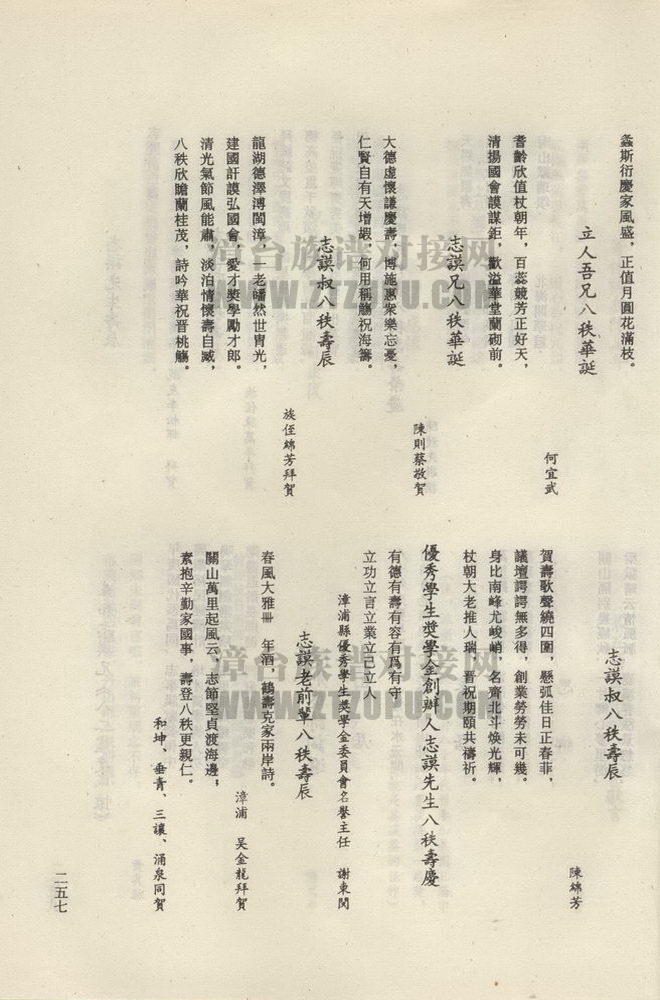 螽斯衍慶家風盛，正值月圓花滿枝。
立人吾兄八秩華誕
何宜武
耆齡欣值杖朝年，百蕊競芳正好天，
清揚國會謨謀鉅，歡溢華堂蘭砌前。
志謨兄八秩華誕
陳則蔡敬賀
大德虛懷謙慶壽，博施惠衆樂忘憂，
仁賢自有天增嘏，何用稱觴祝海籌。
志謨叔八秩壽辰
族侄綿芳拜賀
龍湖德澤溥閩漳，一老皤然世胄光，
建國訏謨弘國會，愛才獎學勵才郎。
清光氣節風能肅，淡泊情懷壽自臧，
八秩欣瞻蘭桂茂，詩吟華祝晋桃觴。
志謨叔八秩壽辰
陳綿芳
賀壽歌聲繞四圍，懸弧佳日正春菲，
議壇諤諤無多得，創業勞勞未可幾。
身比南峰尤峻峭，名齊北斗煥光輝，
杖朝大老推人瑞，晋祝期頤共禱祈。
優秀學生獎學金創辦人志謨先生八秩壽慶
有德有壽有容有爲有守
立功立言立業立己立人
漳浦縣優秀學生獎學金委員會名譽主任　謝東閔
志謨老前輩八秩壽辰
春風大雅冊　年酒，鶴壽克家兩岸詩。
漳浦　吴金龍拜賀
關山萬里起風云，志節堅貞渡海邊；
素抱辛勤家國事，壽登八秩更親仁。
和坤、垂青、三讓、涌泉同賀
二五七
漳台族谱对接网
WWW.ZTZUPU.COM
漳台族谱对接网
WWW.ZTZUPU.COM